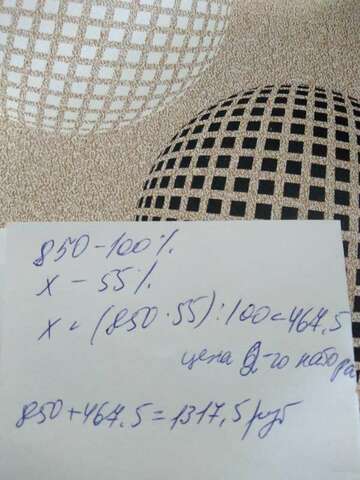 850 - 100%.
x - 55%.
x = (850 · 55) : 100 = 467,5
цена 2-го набора
850 + 467,5 = 1317,5 руб